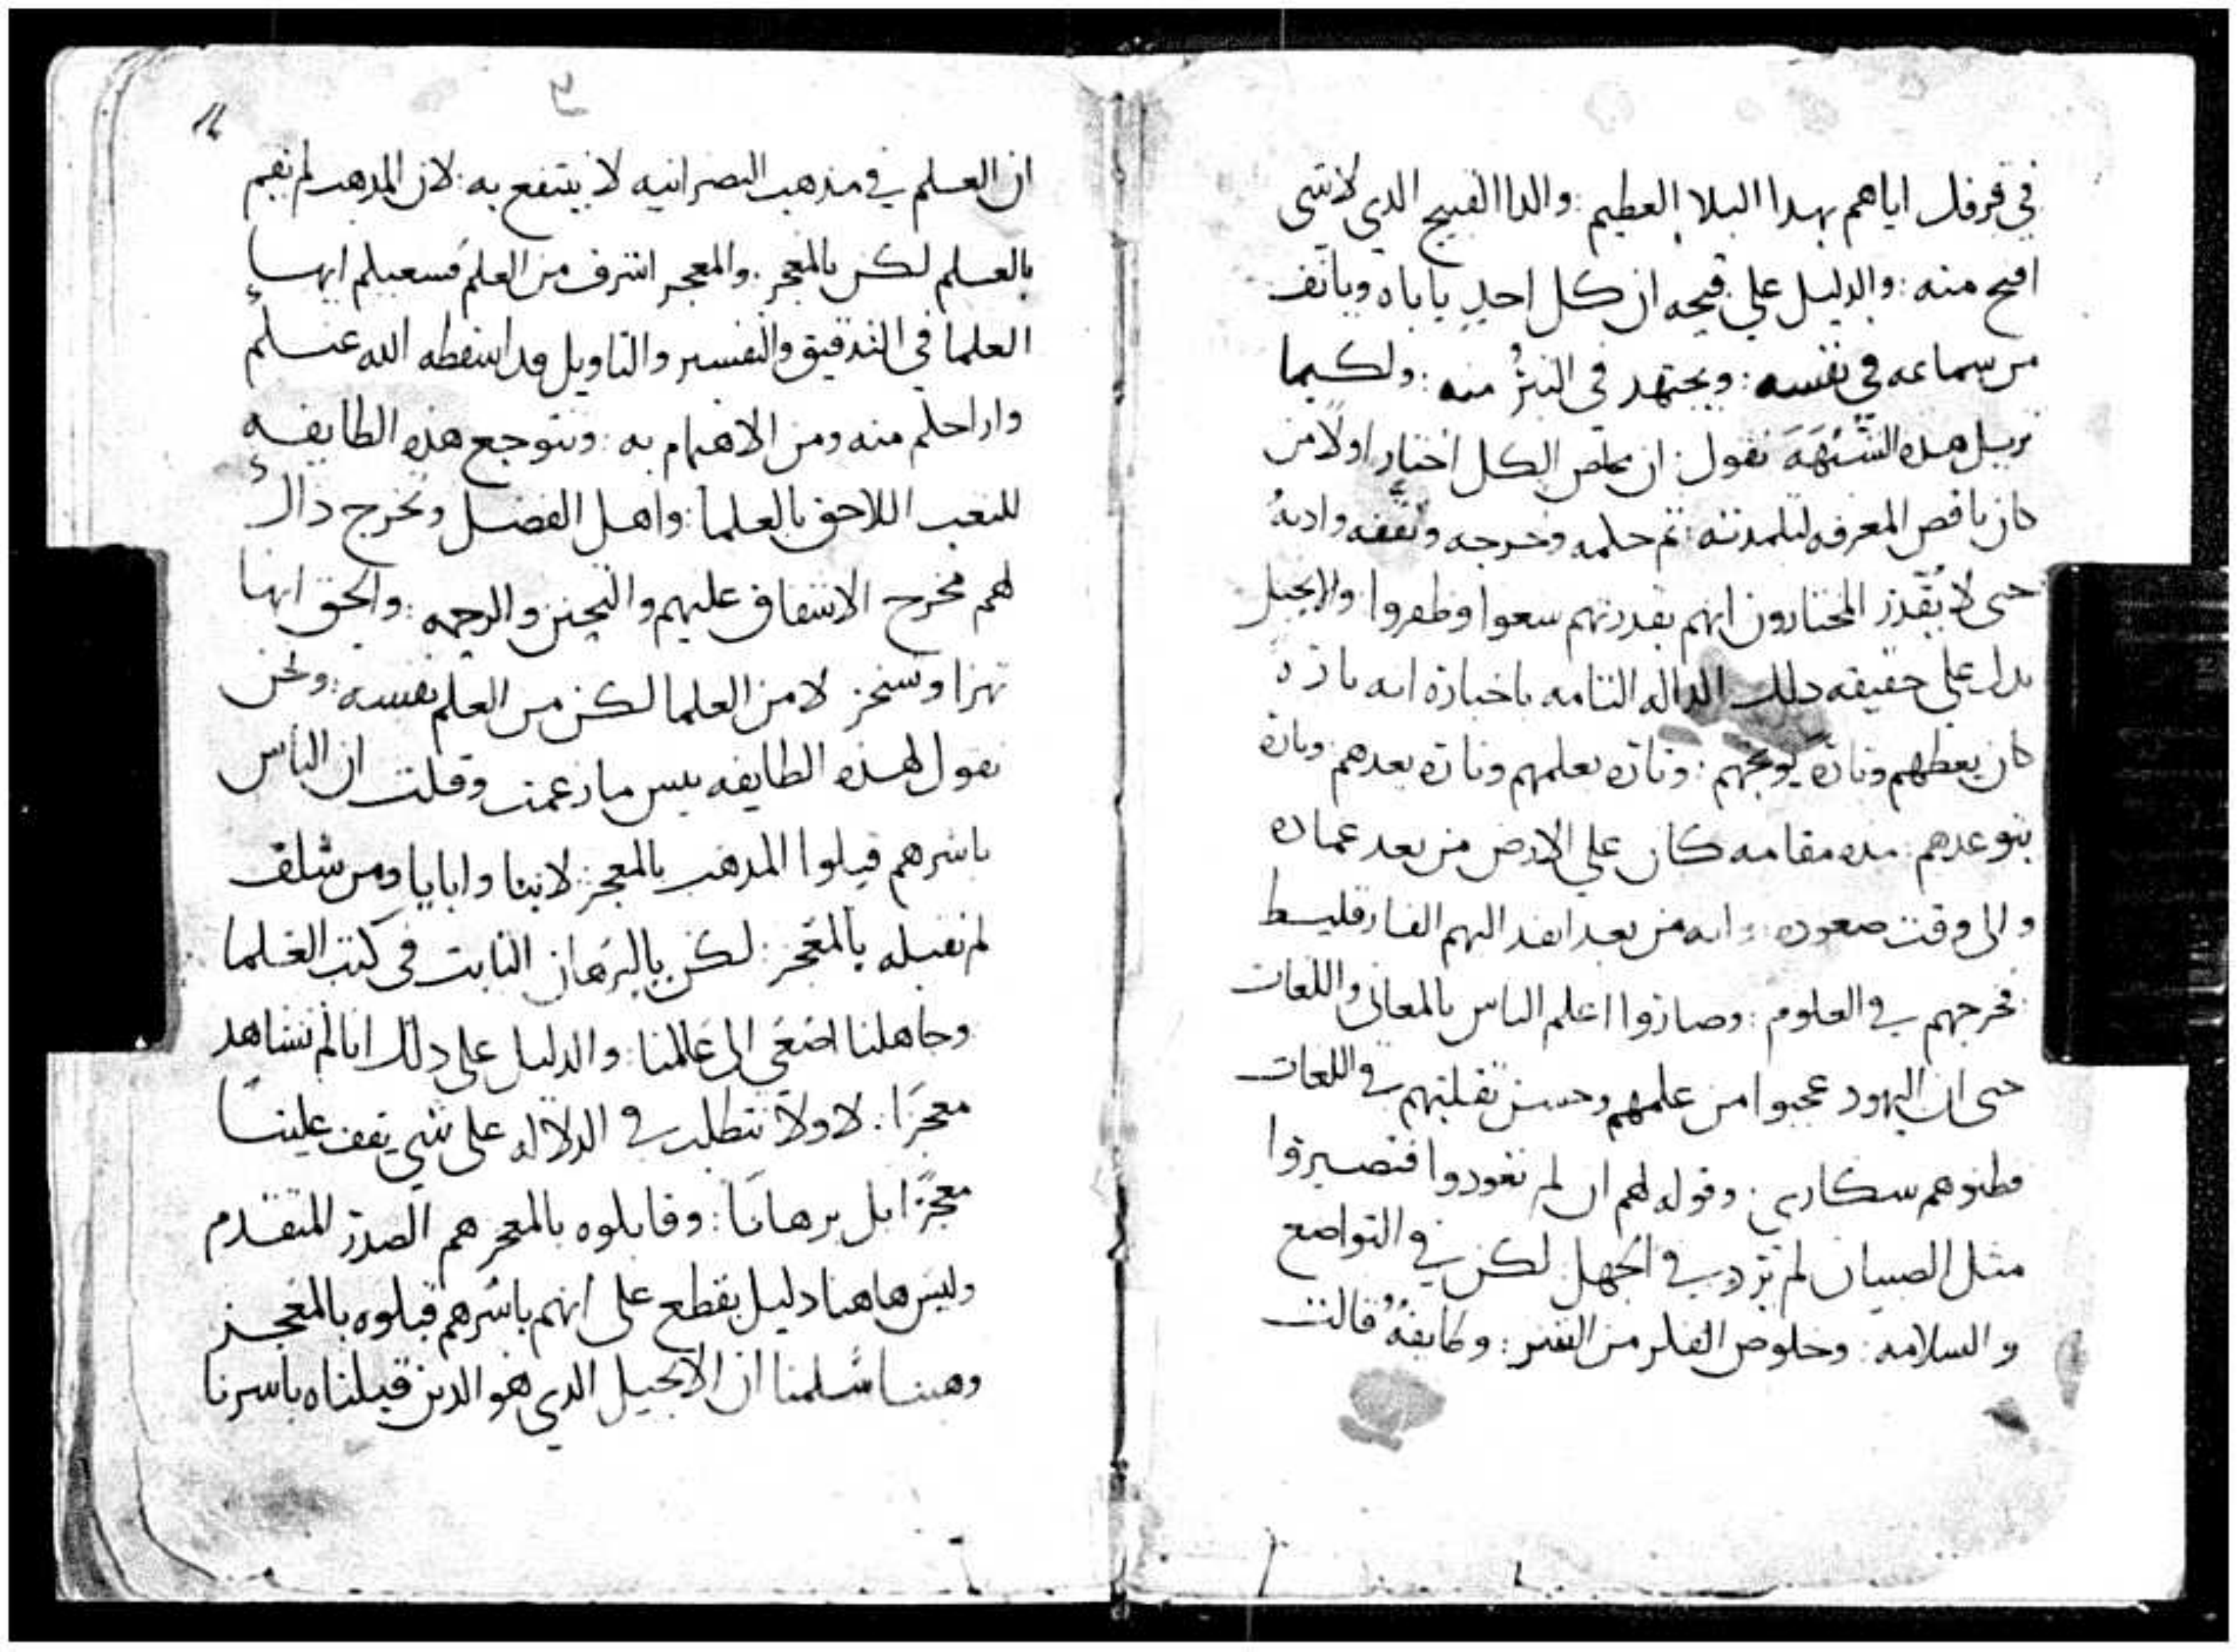 في قرفك اياهم بهدا البلا العظيم : والدا القبيح الدي لا شي
اقبح منه : والدليل علي قبحه ان كل احدٍ ياباه ويانف
من سماعه في نفسه : ويجتهد في التبرُّ منه : ولكيما
نزيل هده الشُبْهَهَ نقول : ان مخلص الكل اختار اولًا من
كان ناقص المعرفه لتلمدته : تم حلمه وخرجه وثقفه وادبهُ
حتي لا يُقدّر المختارون انهم بقدرتهم سعوا وظفروا والانجيل
يدل علي حقيقه دلك الداله التامه باخباره انه تارةً
كان يعظهم وتارة يوبخهم : وتاره يعلمهم وتاره يعدهم وتارة
يتوعدهم : مده مقامه كان علي الارض من بعد عماده
والي وقت صعوده : وانه من بعد انفد اليهم الفارقليط
فخرجهم في العلوم : وصاروا اعلم الناس بالمعاني واللغات
حتي ان اليهود عجبوا من علمهم وحسن تقلبهم في اللغات
فظنوهم سكاري : وقوله لهم ان لم تعودوا فتصيروا
مثل الصبيان لم يرد به في الجهل لكن في التواضع
والسلامه : وخلوص الفكر من الشر : وطايفهٌ قالت
ان العلم في مدهب النصرانيه لا ينتفع به : لان المدهب لم نقيم
بالعلم لكن بالمعجز : والمعجز اشرف من العلم فسعيكم ايها
العلما في التدقيق والتفسير والتاويل قد اسقطه الله عنكم
واراحكم منه ومن الاهتمام به : وتتوجع هده الطايفه
للتعب اللاحق بالعلما : واهل الفضل وتخرج دالك
لهم مخرج الاشفاق عليهم والتحنن والرحمه : والحق انها
تهزا وتسخر لا من العلما لكن من العلم نفسه : ونحن
نقول لهده الطايفه بيس ما زعمت وقلت ان الناس
باسرهم قبلوا المدهب بالمعجز : لاننا واباينا ومن سلف
لم نقبله بالمعجز : لكن بالبرهان الثابت في كتب العلما
وجاهلنا اصغي الي عالمنا : والدليل علي دلك انا لم نشاهد
معجزًا : لا ولا نتطلب في الدلاله علي شي يقف علينا
معجزًا بل برهانًا : وقابلوه بالمعجز هم الصدر المتقدم
وليس هاهنا دليل يقطع علي انهم باسرهم قبلوه بالمعجز
وهبنا سلمنا ان الانجيل الدي هو الدين قبلناه باسرنا